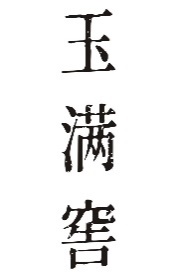 玉满窖